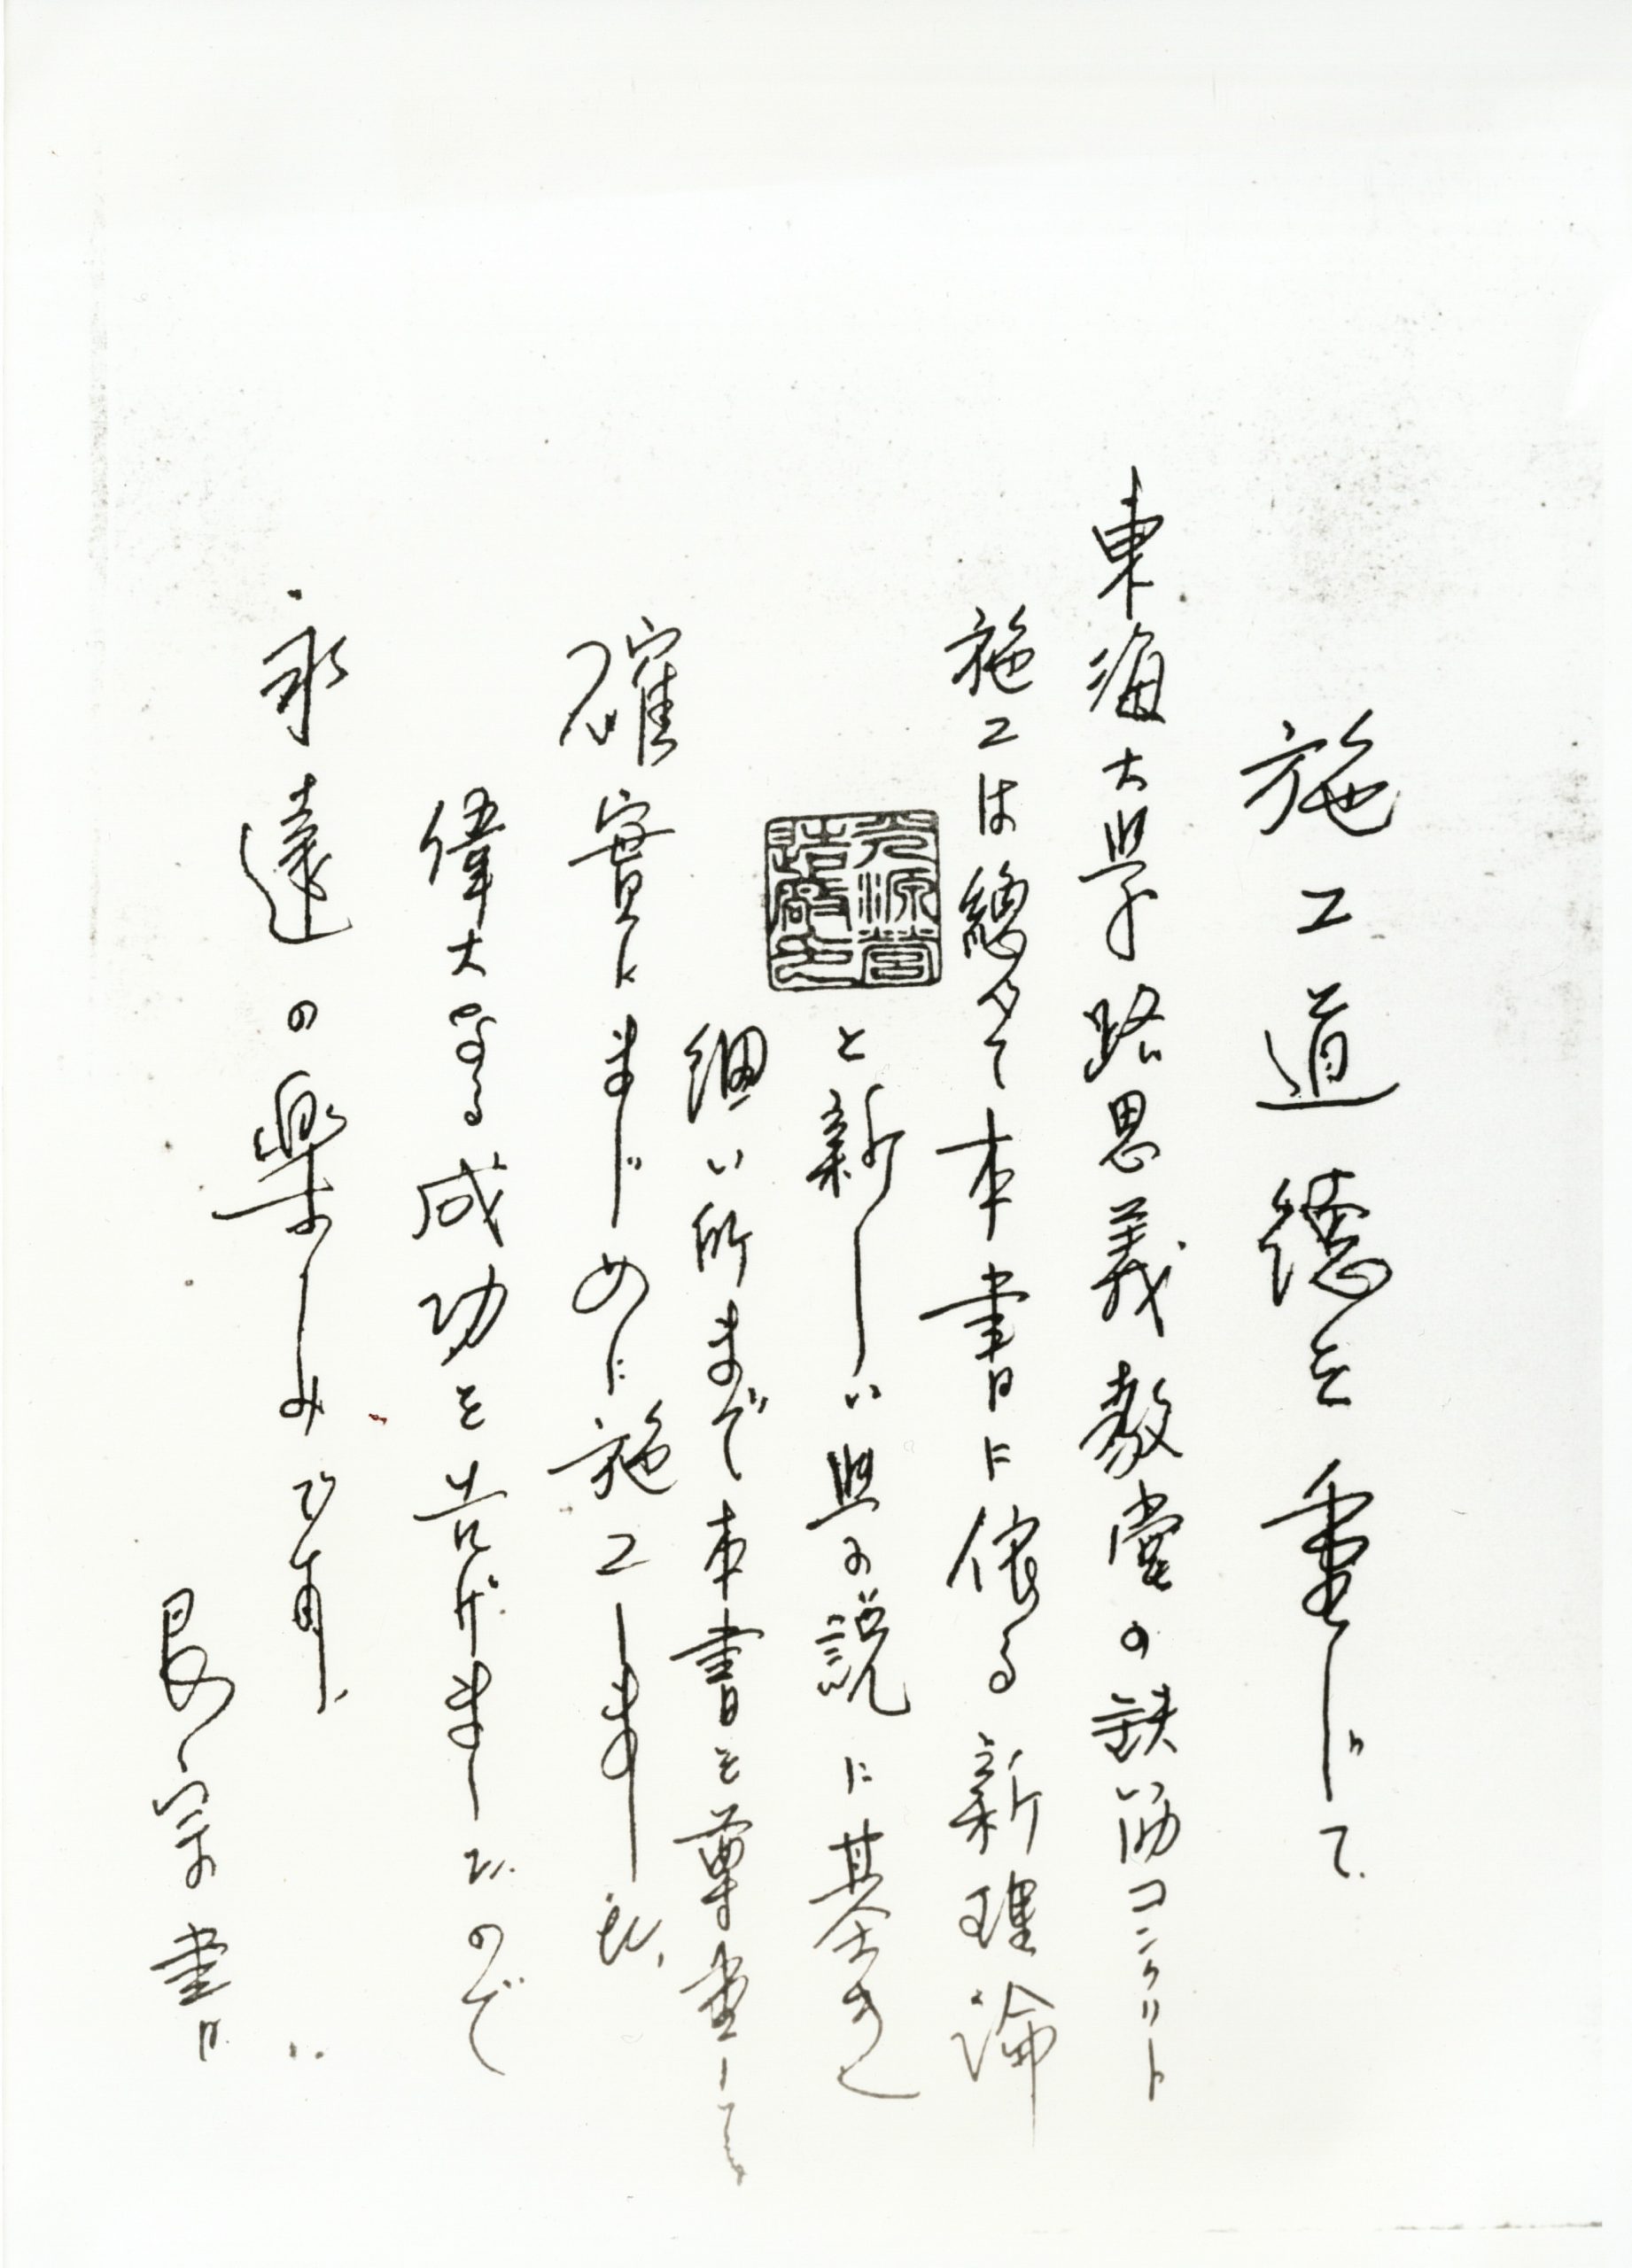 施工道徳を重じて
東海大学路思義教堂の鉄筋コンクリート
施工は総て本書に依る新理論
と新しい学説に基き
光源営造廠印
細い所まで本書を尊重して
確實にまじめに施工しました
偉大なる成功を告げましたので
永遠の楽しみです
書